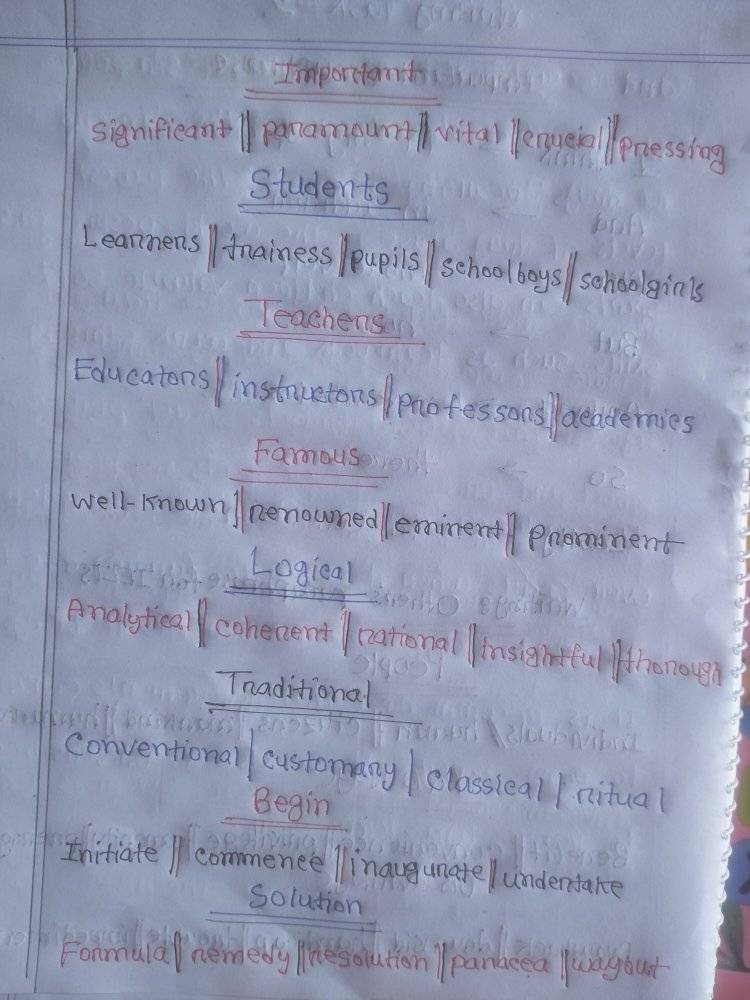 Important
Significant || paramount || vital || crucial || pressing
Students
Learners || trainess || pupils || schoolboys || schoolgirls
Teachers
Educators || instructors || professors || academics
Famous
Well-known || renowned || eminent || prominent
Logical
Analytical || coherent || rational || insightful || thorough
Traditional
Conventional | customary | classical | ritual
Begin
Initiate || commence || inaugurate || undertake
Solution
Formula || remedy || resolution || panacea || wayout